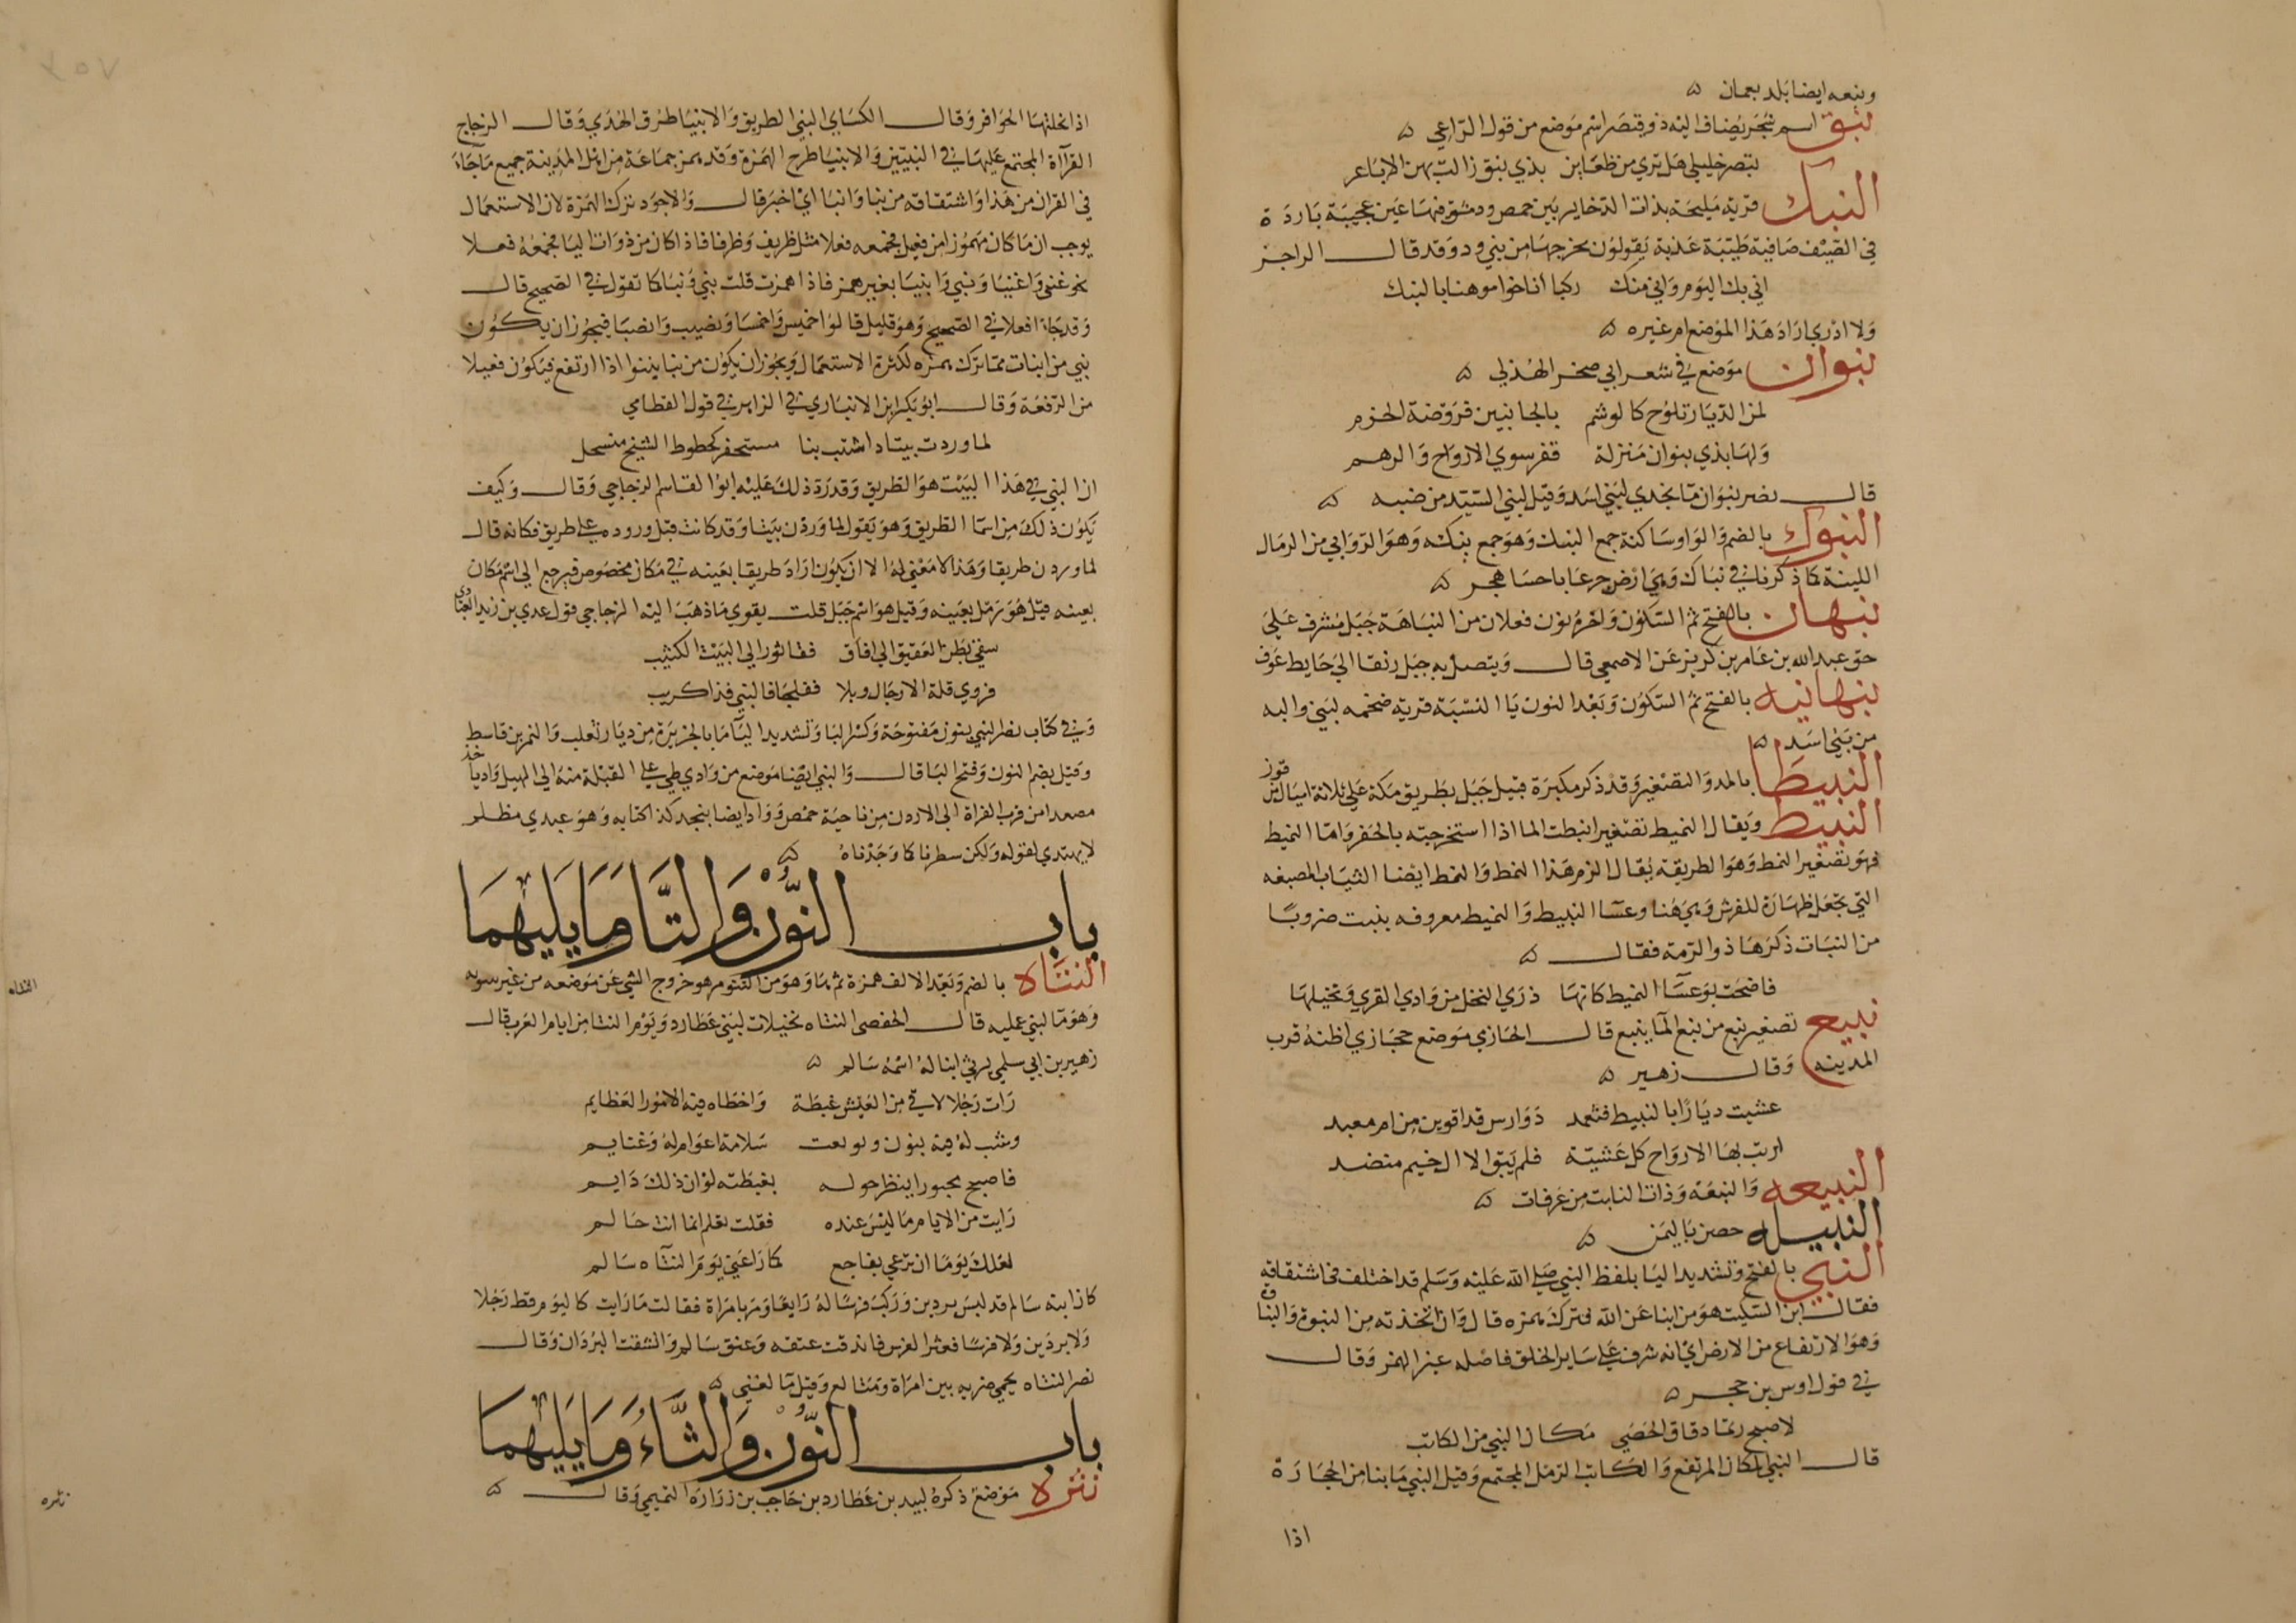 ونبعه ايضا بلد بعمان ۵
نبق اسم شجر يضاف اليه ذو قيصر اسم موضع من قول الراعي ۵
تبصر خليلي هل تري من ظعاين بذي نبق زالت بهن الاباعر
النبك قرية مليحة بذات الذخاير بين حمص ودمشق فيها عين عجيبة باردة
في الصيف صافية طيبة عذبة يقولون مخرجها من يبرود وقد قال الراجز
اني بك اليوم واني منك ركبا اناخوا موهنا بالنبك
ولا ادري اراد هذا الموضع ام غيره ۵
نبوان موضع في شعر ابي صخر الهذلي ۵
لمن الديار تلوح كالوشم بالجابتين فروضة الحزم
ولها بذي نبوان منزلة قفر سوي الارواح والرهم
قال نصر نبوان ما نجدي لبني اسد وقيل لبني السيد من ضبه ۵
النبوك بالضم والواو ساكنة جمع النبك وهو جمع نبكه وهو الروابي من الرمال
اللينة كما ذكرنا في نباك وهي ارض جرعا باحسا هجر ۵
نبهان بالفتح ثم السكون واخره نون فعلان من النباهة جبل مشرف علي
حق عبد الله بن عامر بن كريز عن الاصمعي قال ويتصل به جبل رنقا الي حايط عوف
نبهانيه بالفتح ثم السكون وبعد النون يا النسبة قرية ضخمه لبني والبه
من بني اسد ۵
النبيطا بالمد والتصغير وقد ذكر مكبرة قيل جبل بطريق مكة علي ثلاثة اميال من توز
النبيط ويقال النميط تصغير انبطت الما اذا استخرجته بالحفر واما النميط
فهو تصغير النمط وهو الطريقة يقال الزم هذا النمط والنمط ايضا الثياب المصبغه
التي تجعل ظهارة للفرش وهي هنا وعسا النبيط والنميط معروفه ينبت ضروبا
من النبات ذكرها ذو الرمة فقال ۵
فاضحت بوعسا النميط كانها ذري النخل من وادي القري ونخيلها
نبيع تصغير نبع من نبع الما ينبع قال الحازمي موضع حجازي اظنه قرب
المدينه وقال زهير ۵
غشيت ديارا بالنبيط فثهمد دوارس قد اقوين من ام معبد
اربت بها الارواح كل عشية فلم يبق الا ال خيم منضد
النبيعه والنبعة وذات النابت من عرفات ۵
النبيله حصن باليمن ۵
النبي بالفتح وتشديد اليا بلفظ النبي صلي الله عليه وسلم قد اختلف في اشتقاقه
فقال ابن السكيت هو من انبا عن الله فترك همزه قال وان اتخذته من النبوة والنباوة
وهو الارتفاع من الارض اي انه شرف علي ساير الخلق فاصله غير الهمز وقال
في قول اوس بن حجر ۵
لاصبح رتما دقاق الحصي مكان النبي من الكاتب
قال النبي المكان المرتفع والكاتب الرمل المجتمع وقيل النبي ما نبا من الحجارة
اذا
اذا نجلتها الحوافر وقال الكساي النبي الطريق والانبيا طرق الهدي وقال الزجاج
القراة المجتمع عليها في النبيين والانبيا طرح الهمزة وقد همز جماعة من اهل المدينة جميع ما جاء
في القران من هذا واشتقاقه من نبا وانبا اي اخبر قال والاجود ترك الهمزة لان الاستعمال
يوجب ان ما كان مهموزا من فعيل فجمعه فعلا مثل ظريف وظرفا فاذا كان من ذوات اليا فجمعه افعلا
نحو غني واغنيا ونبي وانبيا بغير همز فاذا همزت قلت نبي ونبا كما تقول في الصحيح قال
وقد جاء افعلا في الصحيح وهو قليل قالوا خميس واخمسا ونصيب وانصبا فيجوز ان يكون
نبي من انبات مما ترك همزه لكثرة الاستعمال ويجوز ان يكون من نبا ينبوا اذا ارتفع فيكون فعيلا
من الرفعة وقال ابو بكر ابن الانباري في الزاهر في قول القطامي
لما وردت بيتا د اشتب بنا مستحفر كخطوط الشيح منسحل
ان النبي في هذا البيت هو الطريق وقد رد ذلك عليه ابو القاسم الزجاجي وقال وكيف
يكون ذلك من اسما الطريق وهو يقول لما وردن بيتا وقد كانت قبل وروده علي طريق فكانه قال
لما وردن طريقا وهذا لا معني له الا ان يكون اراد طريقا بعينه في مكان مخصوص فيرجع الي اسم مكان
بعينه قيل هو رمل بعينه وقيل هو اسم جبل قلت يقوي ما ذهب اليه الزجاجي قول عدي بن زيد العبادي
سقي بطن العقيق الي افاق ففاثور الي البيت الكثيب
فروي قلة الارجال وبلا ففلجا فالنبي فذا كريب
وفي كتاب نصر النبي بنون مفتوحة وكسر البا وتشديد اليا ما بالجزيرة من ديار تغلب والنمر بن قاسط
وقيل بضم النون وفتح البا قال والنبي ايضا موضع من وادي ظبي علي القبلة منه الي الهيل وادياخذ
مصعدا من قرب الفراة الي الاردن من ناحية حمص وواد ايضا بنجد كذا كتابه وهو عبدي مظلم
لا يهتدي لقوله ولكن سطرنا كما وجدناه ۵
باب النون والتا وما يليهما
النتاه بالضم وبعد الالف همزة ثم ها وهو من النتوء هو خروج الشي عن موضعه من غير بينونه
وهو ما لبني عميله قال الحفصي النتاه نخيلات لبني عطارد ويوم النتا من ايام العرب قال
زهير بن ابي سلمي يرثي ابنا له اسمه سالم ۵
رات رجلا لاقي من العيش غبطة واخطاه فيه الامور العظايم
وشب له فيه بنون وتوبعت سلامة اعوام له وغنايم
فاصبح محبورا ينظر حوله بغبطته لو ان ذلك دايم
رايت من الايام ما ليس عنده فقلت تعلم انما انت حالم
لعلك يوما ان تراعي بفاجع كما راعني يوم النتاه سالم
كان ابنه سالم قد لبس بردين وركب فرسا له رايعا ومر بامراة فقالت ما رايت كاليوم قط رجلا
ولا بردين ولا فرسا فعثر الفرس فاندقت عنقه وعنق سالم وانشقت البردان وقال
نصر النتاه بحمي ضريه بين امرة ومتالع وقيل ما لغني ۵
باب النون والثاء وما يليهما
نثره موضع ذكره لبيد بن عطارد بن حاجب بن زراره التميمي وقال ۵
النتاه
نثره